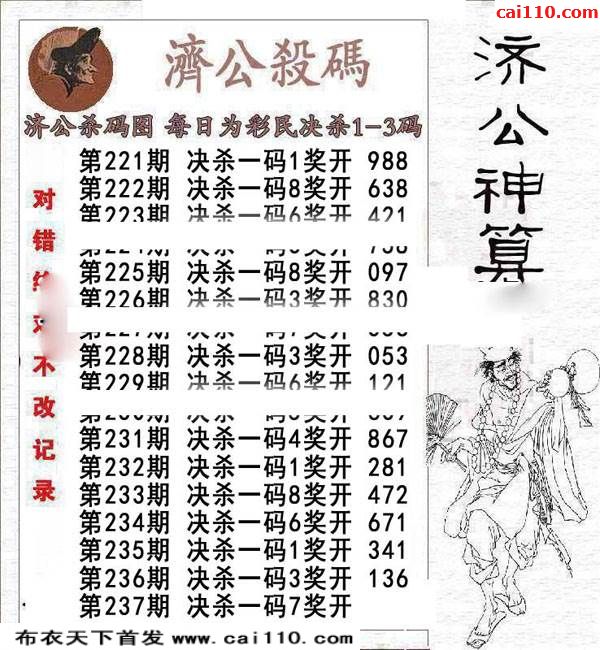 cai110.com
濟公殺碼
济公杀码图 每日为彩民决杀1-3码
第221期 决杀一码1奖开 988
第222期 决杀一码8奖开 638
第223期 决杀一码6奖开 421
第225期 决杀一码8奖开 097
第226期 决杀一码3奖开 830
第228期 决杀一码3奖开 053
第229期 决杀一码6奖开 121
第231期 决杀一码4奖开 867
第232期 决杀一码1奖开 281
第233期 决杀一码8奖开 472
第234期 决杀一码6奖开 671
第235期 决杀一码1奖开 341
第236期 决杀一码3奖开 136
第237期 决杀一码7奖开
对错
不改记录
济公神算
布衣天下首发 www.cai110.com